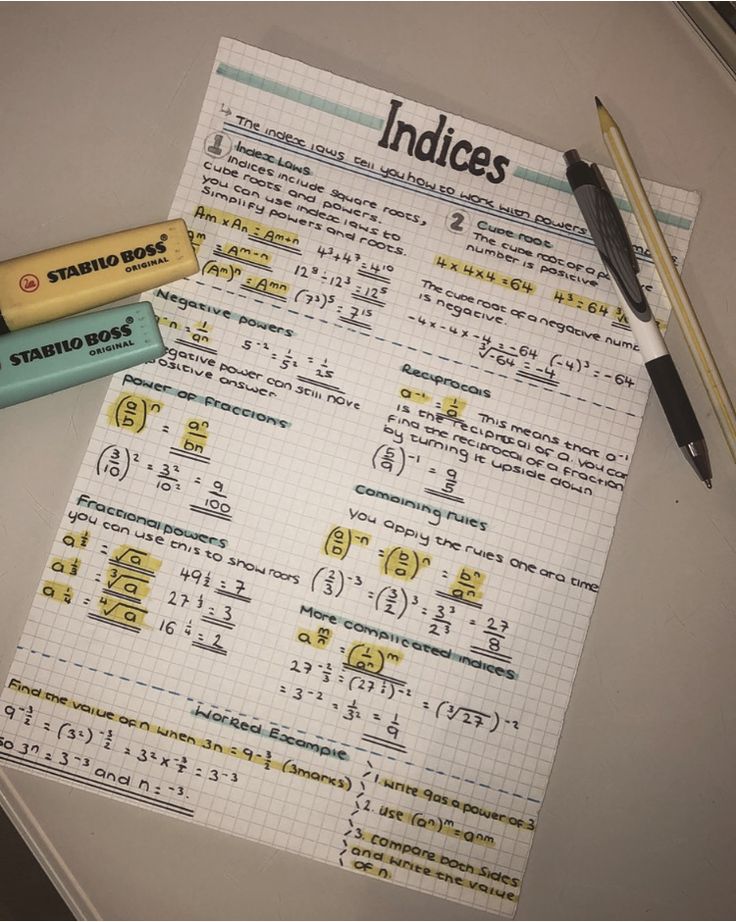 Indices
↳ The index laws tell you how to work with powers
1 Index Laws
Indices include square roots,
cube roots and powers.
you can use index laws to
simplify powers and roots.
Am x An = Am+n
= Am-n
(Am)n = Amn
4³+4⁷ = 4¹⁰
12⁸ ÷ 12³ = 12⁵
(7³)⁵ = 7¹⁵
2 Cube root
The cube root of a
number is positive
4 x 4 x 4 = 64
4³ = 64
The cube root of a negative
is negative.
-4 x -4 x -4 = -64 (-4)³ = -64
³√-64 = -4
Negative powers
= 1/aⁿ
5⁻² = 1/5² = 1/25
negative power can still have
positive answer
Reciprocals
a⁻¹ = 1/a This means that a⁻¹
is the reciprocal of a. You can
find the reciprocal of a fraction
by turning it upside down
(5/9)⁻¹ = 9/5
Power of fractions
(a/b)ⁿ = aⁿ/bⁿ
(3/10)² = 3²/10² = 9/100
Combining rules
You apply the rules one at a time
(a/b)⁻ⁿ = (b/a)ⁿ = bⁿ/aⁿ
(2/3)⁻³ = (3/2)³ = 3³/2³ = 27/8
Fractional powers
you can use this to show roots
a^1/2 = √a
a^1/3 = ³√a
a^1/4 = ⁴√a
49^1/2 = 7
27^1/3 = 3
16^1/4 = 2
More complicated indices
27^-2/3 = (27^1/3)⁻² = (³√27)⁻²
= 3⁻² = 1/3² = 1/9
Worked Example
Find the value of n when 3n = 9^-3/2 (3marks)
9^-3/2 = (3²)^-3/2 = 3^2 x -3/2 = 3⁻³
So 3ⁿ = 3⁻³ and n = -3.
1. Write 9 as a power of 3
2. Use (aⁿ)ᵐ = aⁿᵐ
3. Compare both sides
and write the value
of n.
STABILO BOSS
ORIGINAL
STABILO BOSS
ORIGINAL